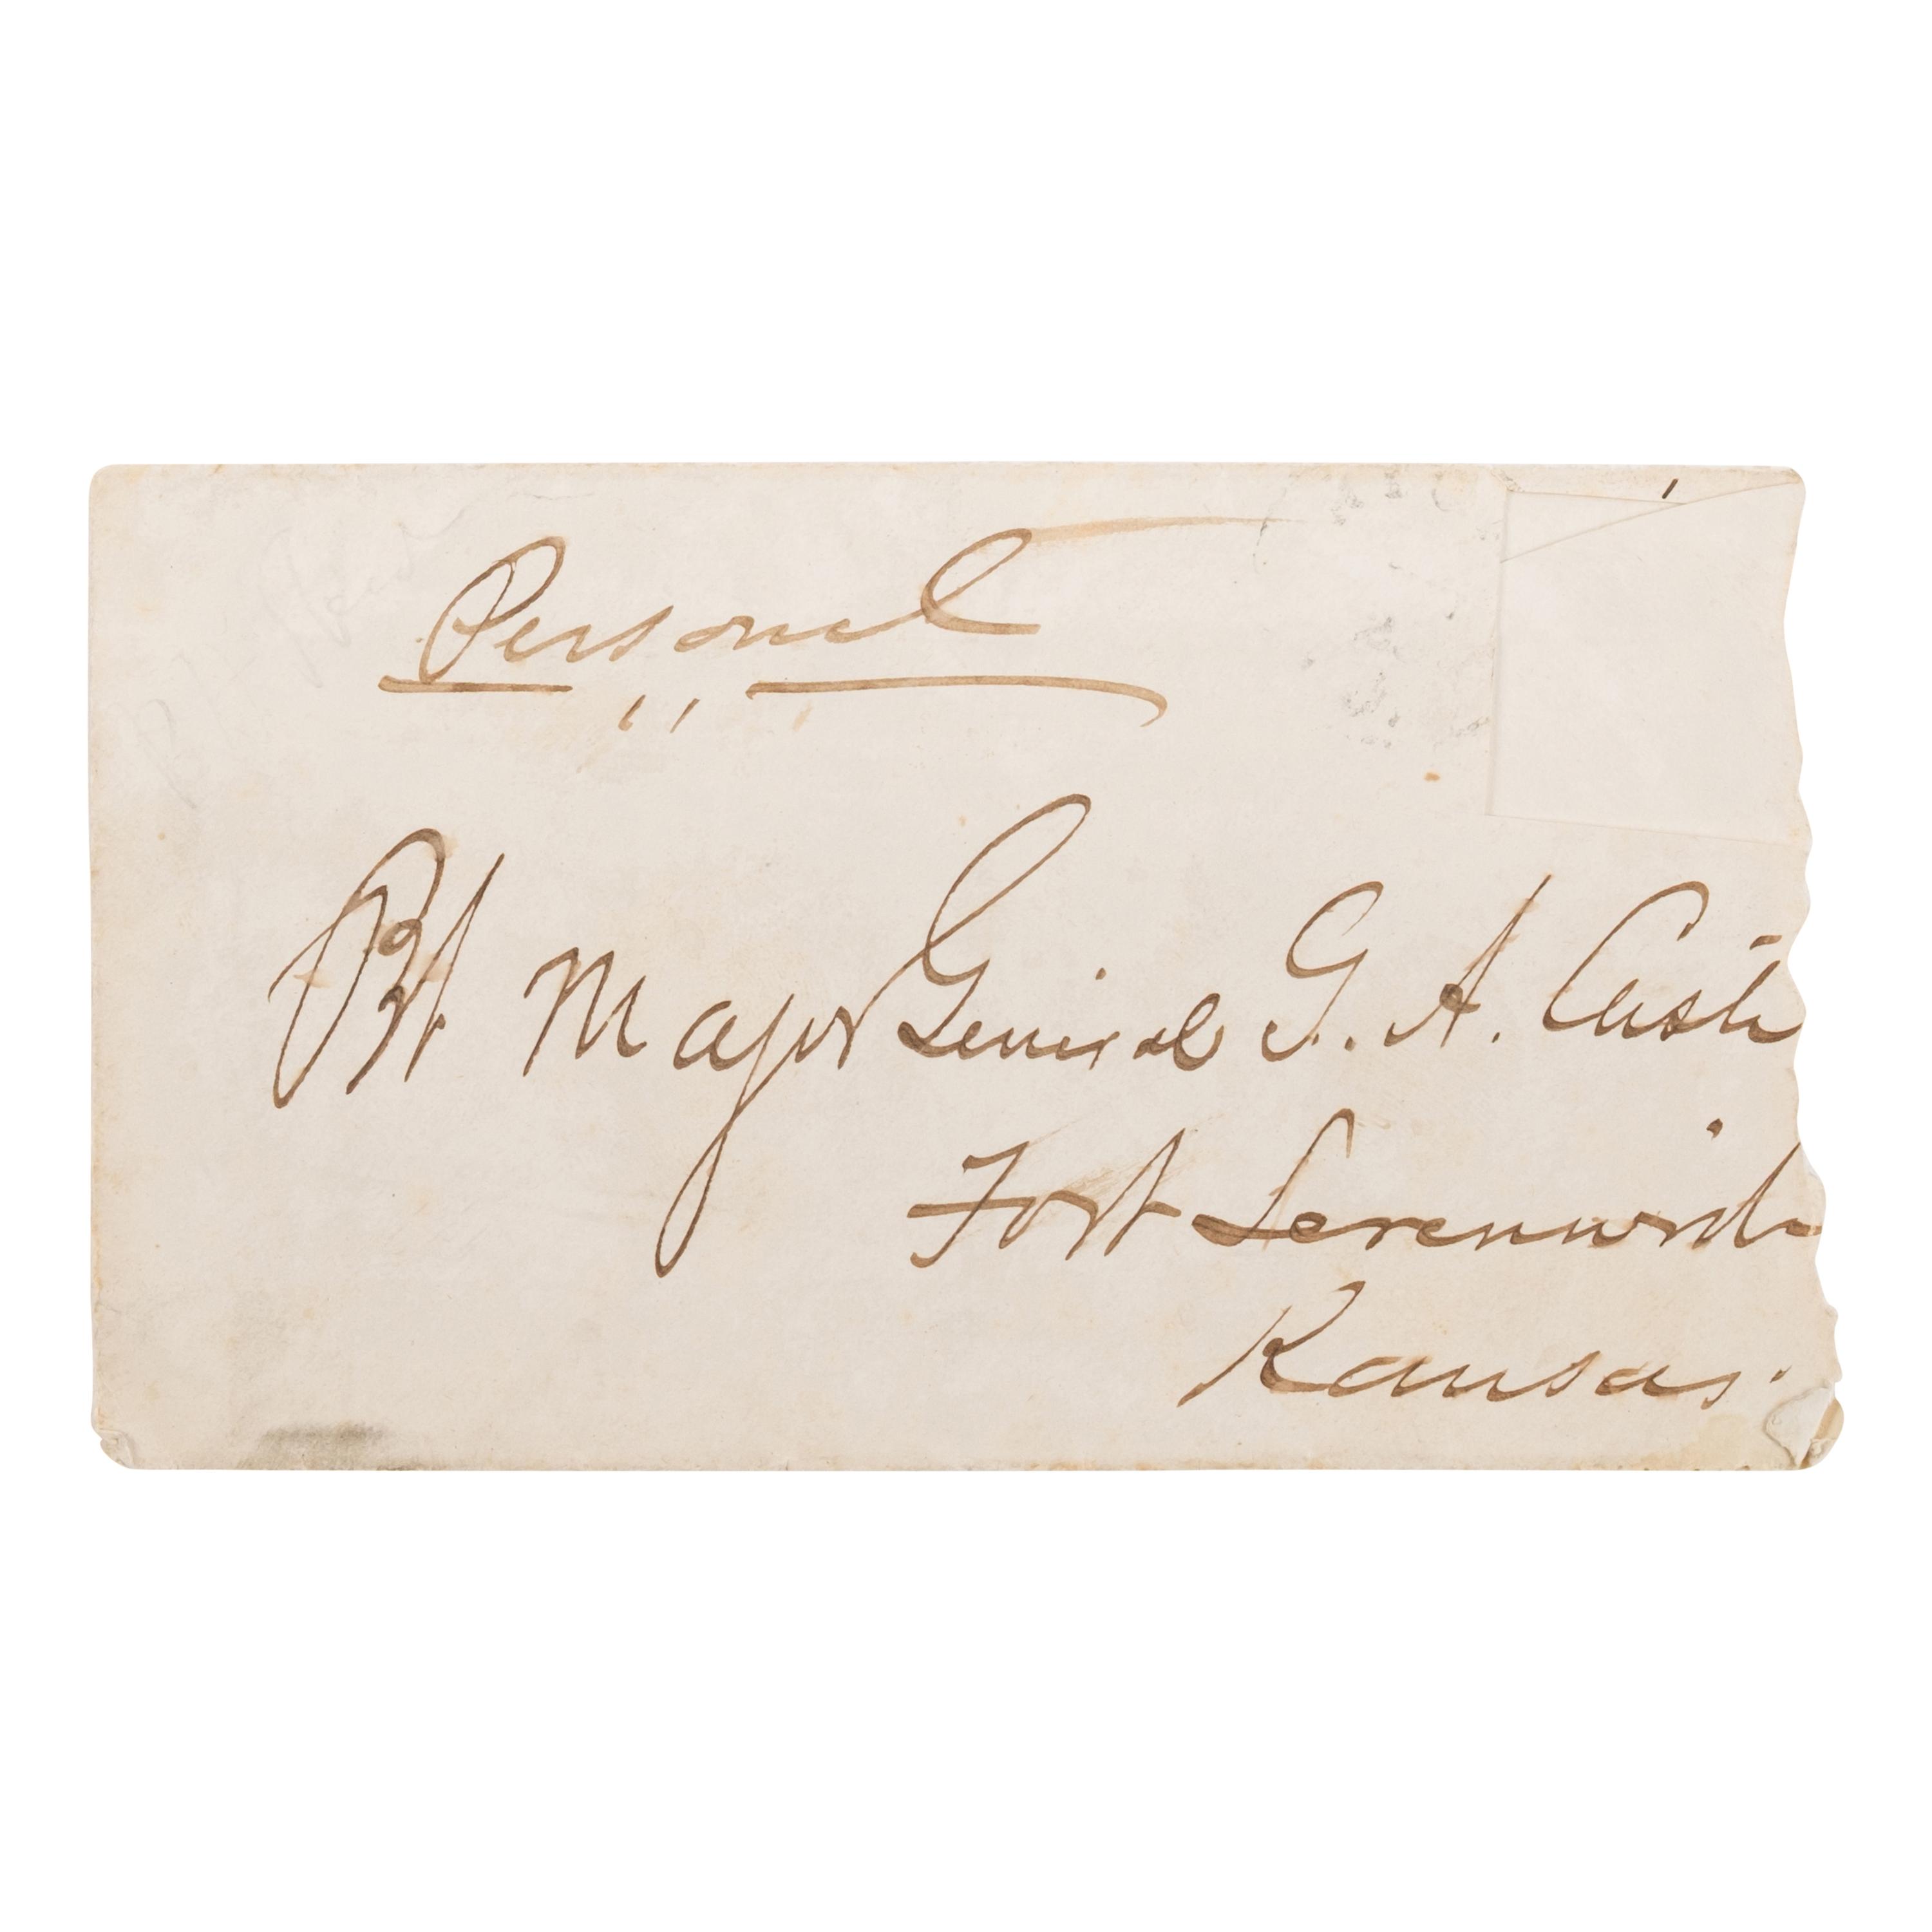 Personal
Bt Major General G. A. Custe
Fort Levenworth
Kansas.